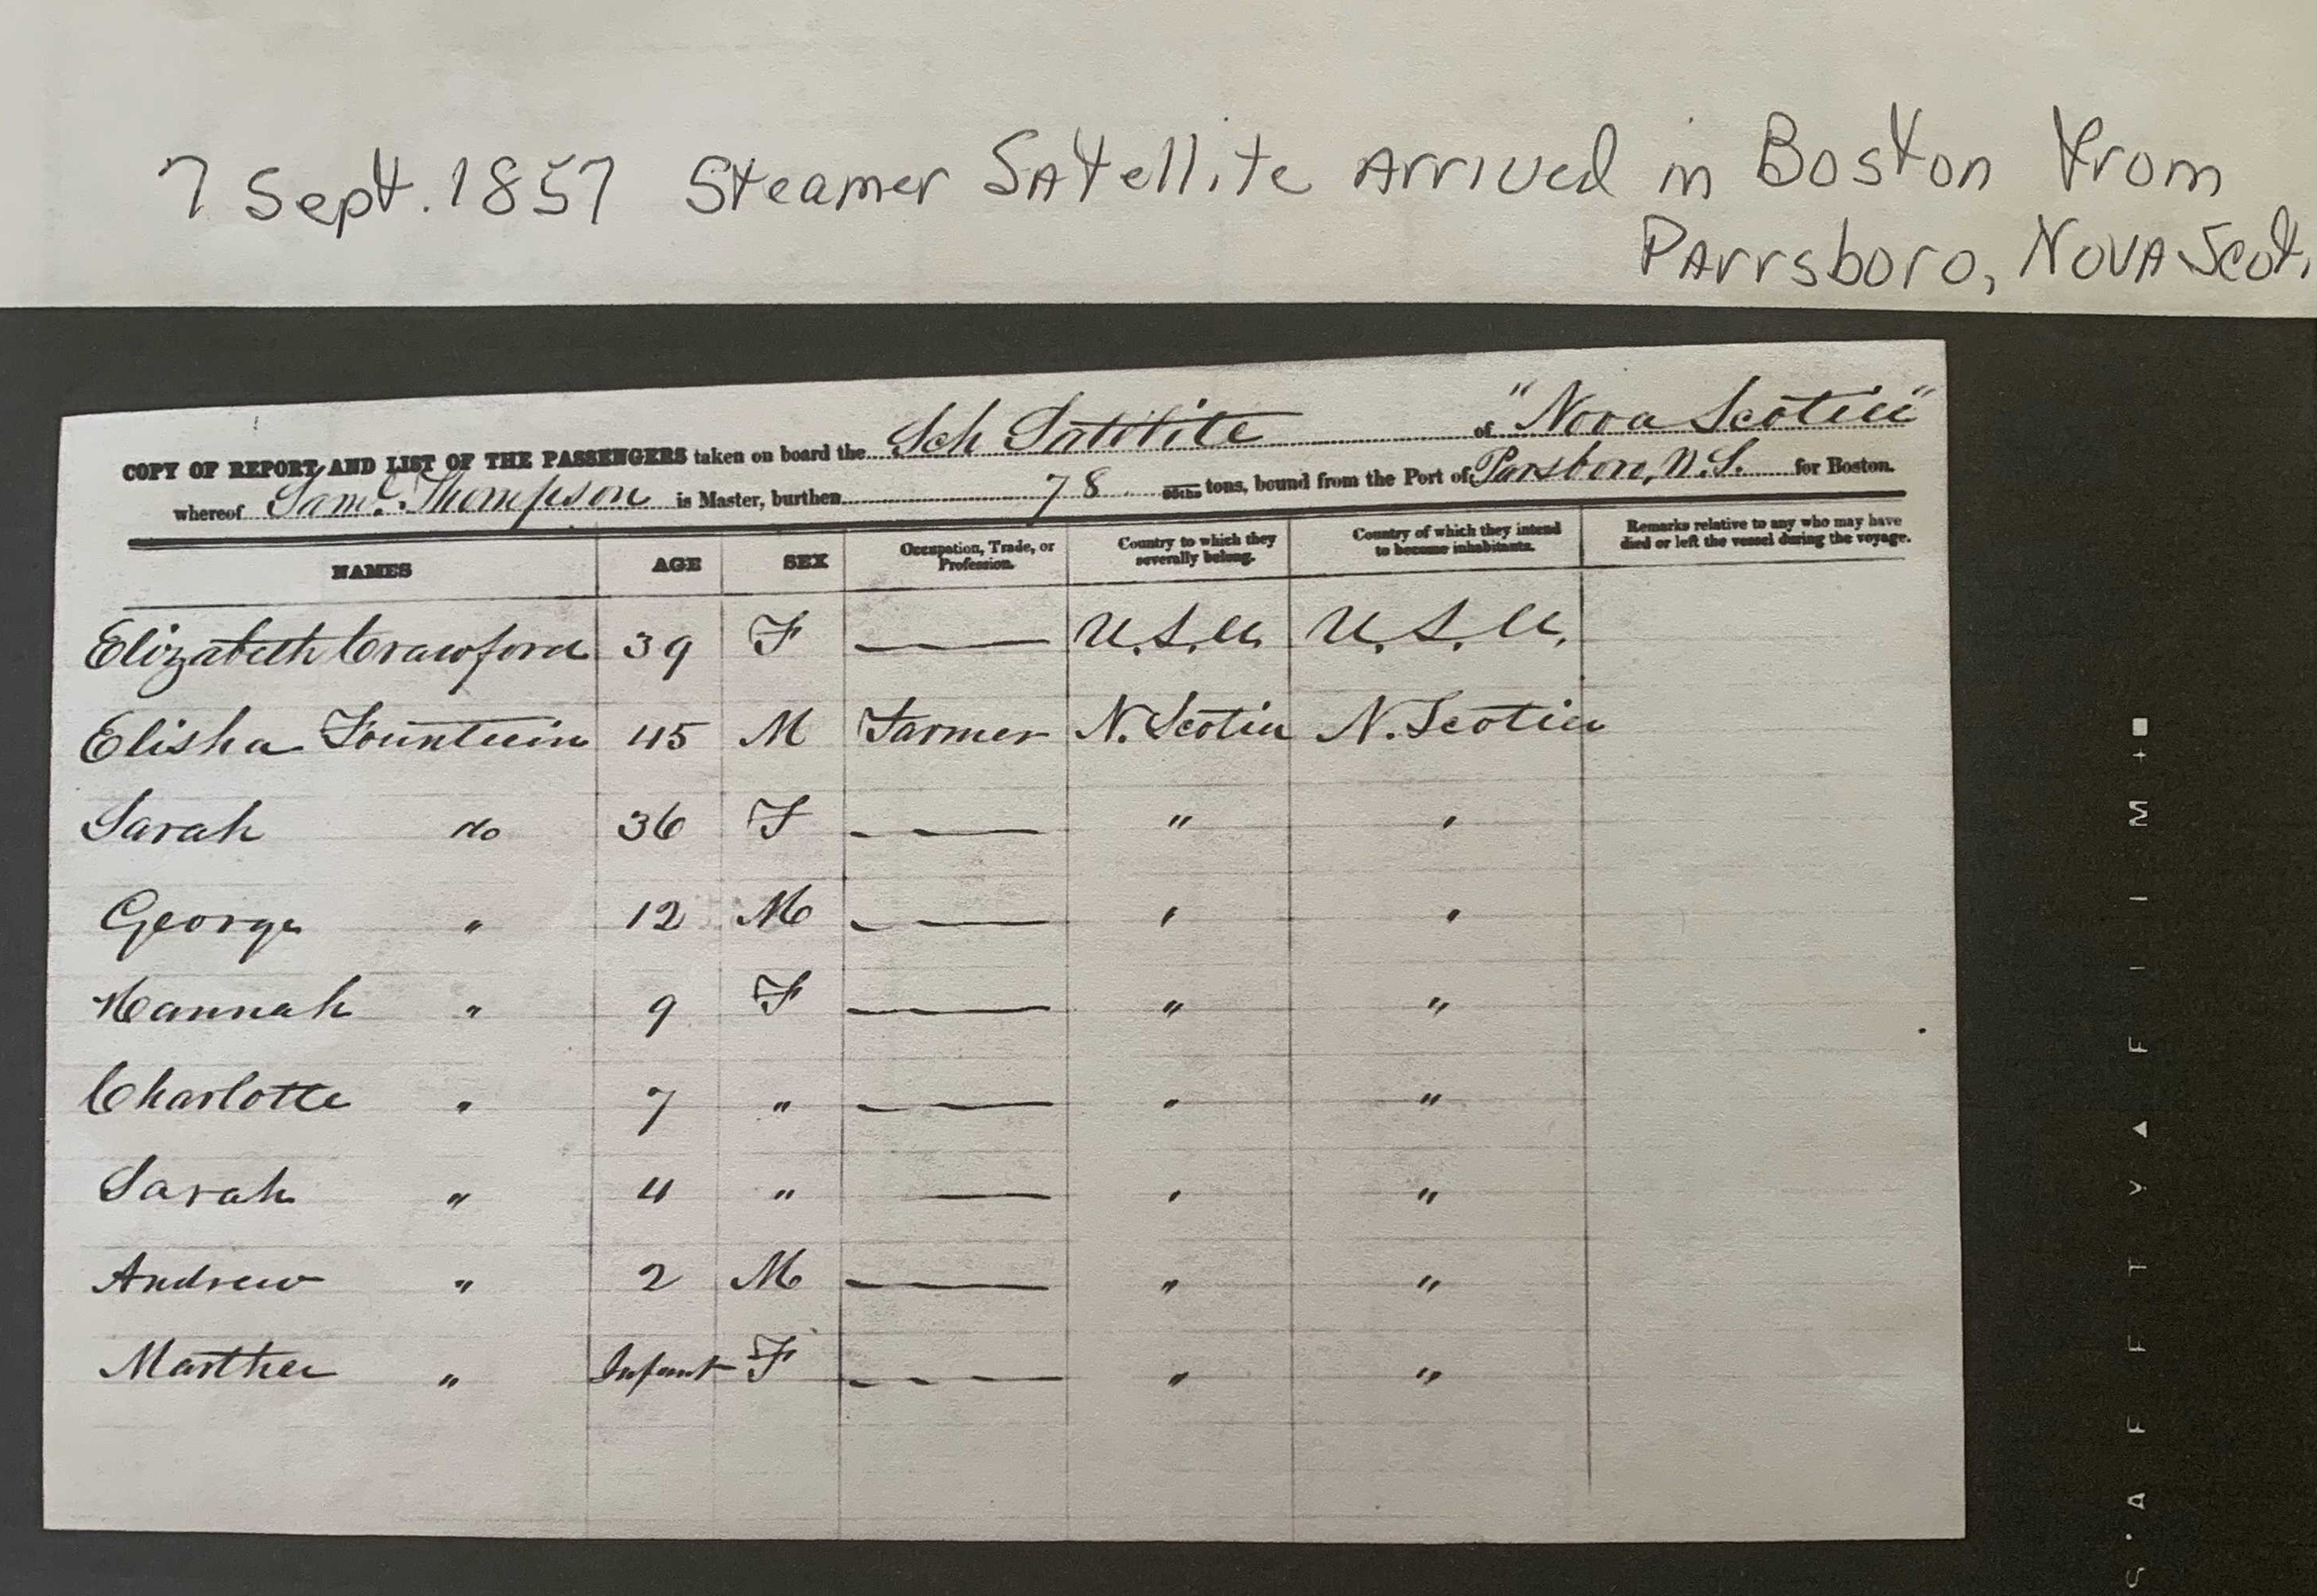 7 Sept. 1857 Steamer Satellite Arrived in Boston from
Parrsboro, Nova Scot.
COPY OF REPORT AND LIST OF THE PASSENGERS taken on board the Sch Satellite of "Nova Scotia"
whereof Saml. Thompson is Master, burthen 78 tons, bound from the Port of Parsboro, N.S. for Boston.
NAMES AGE SEX Occupation, Trade, or Profession. Country to which they severally belong. Country of which they intend to become inhabitants. Remarks relative to any who may have died or left the vessel during the voyage.
Elizabeth Crawford 39 F — U.S.A. U.S.A.
Elisha Fountain 45 M Farmer N. Scotia N. Scotia
Sarah do 36 F — " "
George " 12 M — " "
Hannah " 9 F — " "
Charlotte " 7 " — " "
Sarah " 4 " — " "
Andrew " 2 M — " "
Marther " Infant F — " "
S'AFETY▲FILM